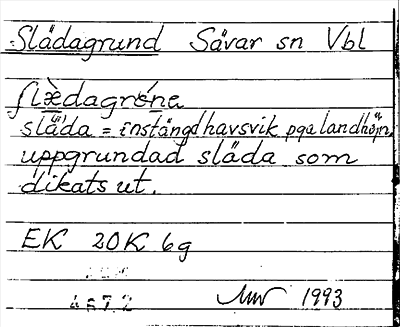 Slädagrund Sävar sn Vbl
släda = instängd havsvik pga landhöjn,
uppgrundad släda som
dikats ut.
EK 20K 6g
1993